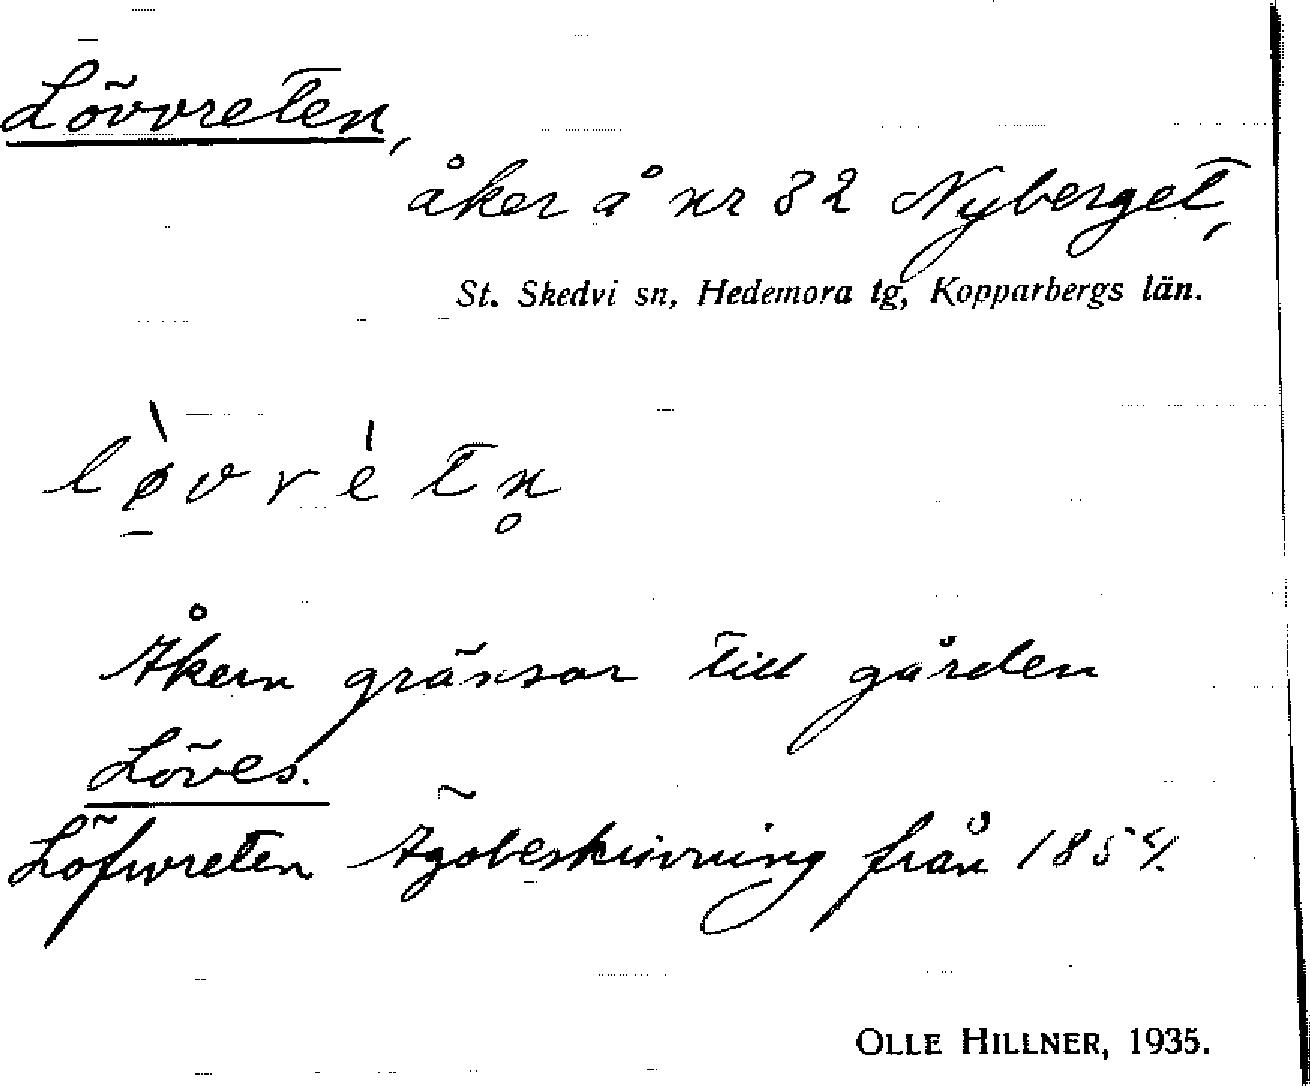 Lövvreten,
åker å nr 32 Nyberget,
St. Skedvi sn, Hedemora tg, Kopparbergs län.
lø̀vvrètn̥
Åkern gränsar till gården
Löves.
Löfvreten Ägobeskrivning från 1854.
OLLE HILLNER, 1935.